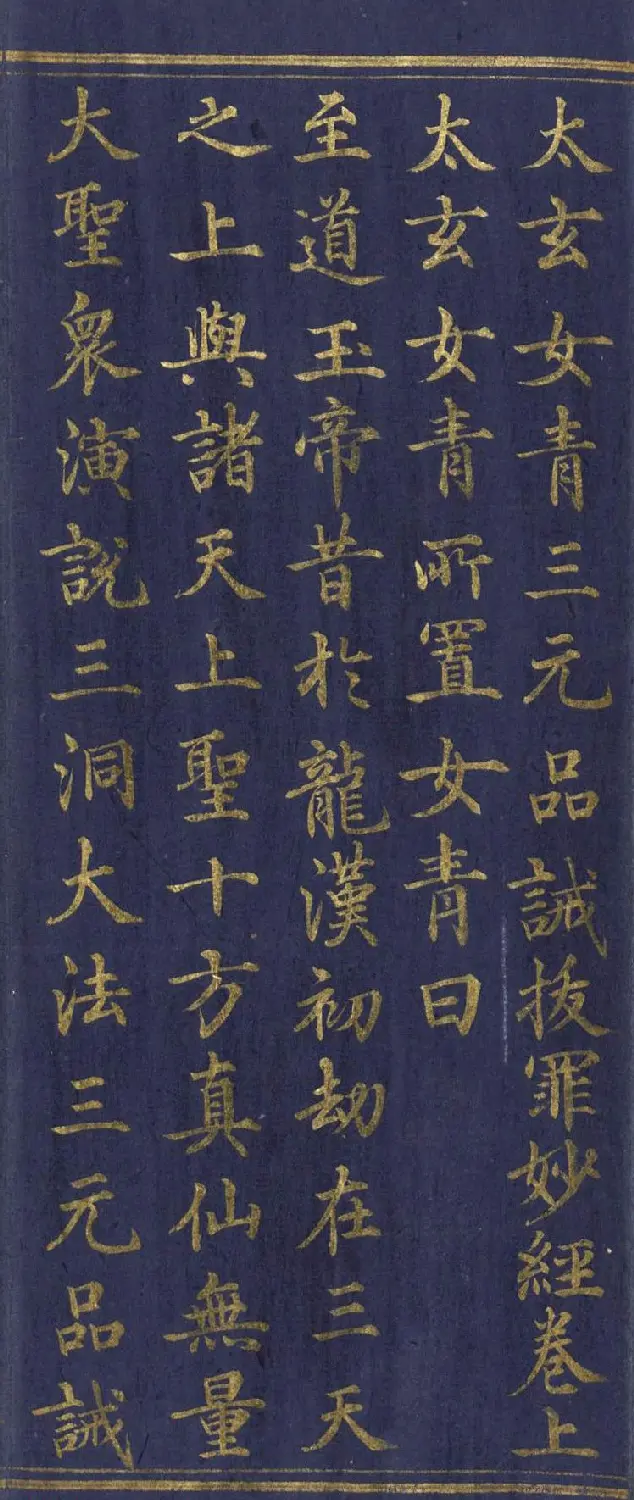 太玄女青三元品誡拔罪妙經卷上
太玄女青所置女青曰
至道玉帝昔於龍漢初劫在三天
之上與諸天上聖十方真仙無量
大聖衆演說三洞大法三元品誡